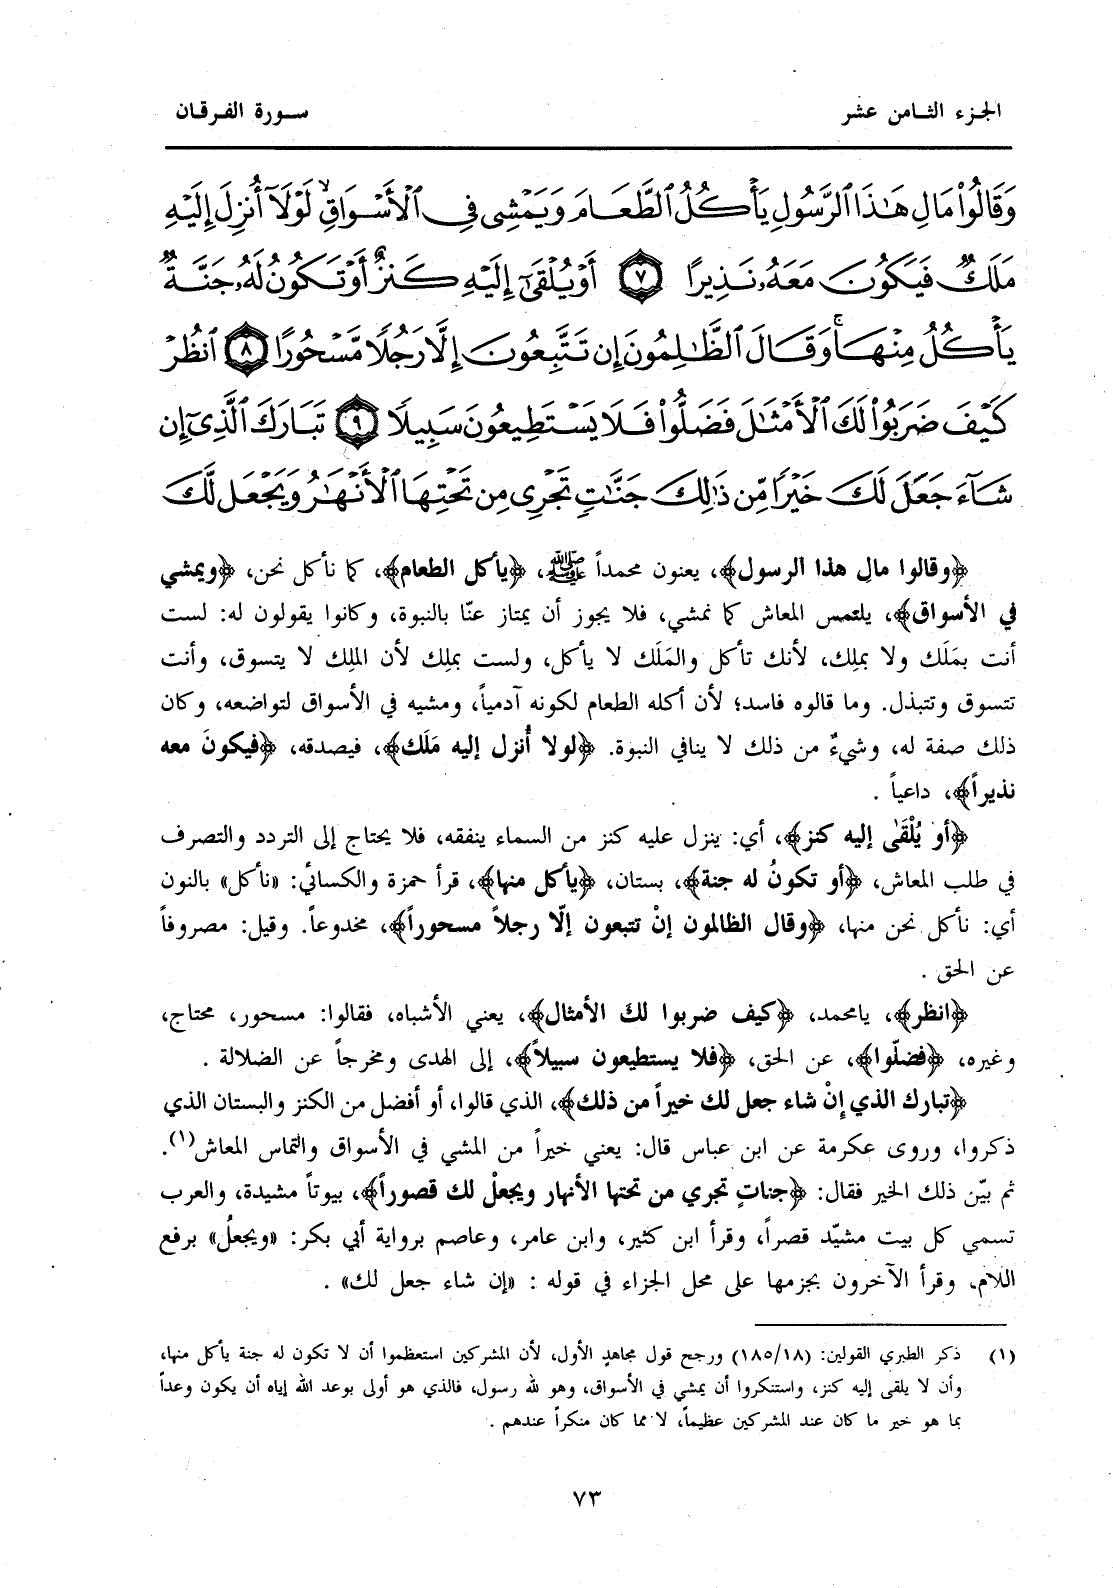 الجزء الثامن عشر
سورة الفرقان
وَقَالُواْ مَالِ هَٰذَا ٱلرَّسُولِ يَأۡكُلُ ٱلطَّعَامَ وَيَمۡشِى فِى ٱلۡأَسۡوَاقِۙ لَوۡلَآ أُنزِلَ إِلَيۡهِ
مَلَكٌ فَيَكُونَ مَعَهُۥ نَذِيرًا ٧ أَوۡ يُلۡقَىٰٓ إِلَيۡهِ كَنزٌ أَوۡ تَكُونُ لَهُۥ جَنَّةٌ
يَأۡكُلُ مِنۡهَاۚ وَقَالَ ٱلظَّٰلِمُونَ إِن تَتَّبِعُونَ إِلَّا رَجُلًا مَّسۡحُورًا ٨ ٱنظُرۡ
كَيۡفَ ضَرَبُواْ لَكَ ٱلۡأَمۡثَٰلَ فَضَلُّواْ فَلَا يَسۡتَطِيعُونَ سَبِيلًا ٩ تَبَارَكَ ٱلَّذِىٓ إِن
شَآءَ جَعَلَ لَكَ خَيۡرًا مِّن ذَٰلِكَ جَنَّٰتٍ تَجۡرِى مِن تَحۡتِهَا ٱلۡأَنۡهَٰرُ وَيَجۡعَل لَّكَ
﴿وقالوا مالِ هذا الرسول﴾، يعنون محمداً ﷺ، ﴿يأكل الطعام﴾، كما نأكل نحن، ﴿ويمشي
في الأسواق﴾، يلتمس المعاش كما نمشي، فلا يجوز أن يمتاز عنّا بالنبوة، وكانوا يقولون له: لست
أنت بمَلَك ولا بملِك، لأنك تأكل والمَلَك لا يأكل، ولست بملِك لأن الملِك لا يتسوق، وأنت
تتسوق وتتبذل. وما قالوه فاسد؛ لأن أكله الطعام لكونه آدمياً، ومشيه في الأسواق لتواضعه، وكان
ذلك صفة له، وشيءٌ من ذلك لا ينافي النبوة. ﴿لولا أُنزل إليه مَلَك﴾، فيصدقه، ﴿فيكونَ معه
نذيراً﴾، داعياً .
﴿أو يُلْقَىٰ إليه كنز﴾، أي: ينزل عليه كنز من السماء ينفقه، فلا يحتاج إلى التردد والتصرف
في طلب المعاش، ﴿أو تكونُ له جنة﴾، بستان، ﴿يأكل منها﴾، قرأ حمزة والكسائي: «نأكل» بالنون
أي: نأكل نحن منها، ﴿وقال الظالمون إنْ تتبعون إلّا رجلاً مسحوراً﴾، مخدوعاً. وقيل: مصروفاً
عن الحق .
﴿انظر﴾، يامحمد، ﴿كيف ضربوا لكَ الأمثال﴾، يعني الأشباه، فقالوا: مسحور، محتاج،
وغيره، ﴿فضلّوا﴾، عن الحق، ﴿فلا يستطيعون سبيلاً﴾، إلى الهدى ومخرجاً عن الضلالة .
﴿تبارك الذي إنْ شاء جعل لك خيراً من ذلك﴾، الذي قالوا، أو أفضل من الكنز والبستان الذي
ذكروا، وروى عكرمة عن ابن عباس قال: يعني خيراً من المشي في الأسواق والتماس المعاش(١).
ثم بيّن ذلك الخير فقال: ﴿جناتٍ تجري من تحتها الأنهار ويجعلْ لك قصوراً﴾، بيوتاً مشيدة، والعرب
تسمي كل بيت مشيّد قصراً، وقرأ ابن كثير، وابن عامر، وعاصم برواية أبي بكر: «ويجعلُ» برفع
اللام، وقرأ الآخرون بجزمها على محل الجزاء في قوله : «إن شاء جعل لك» .
(١) ذكر الطبري القولين: (١٨٥/١٨) ورجح قول مجاهدٍ الأول، لأن المشركين استعظموا أن لا تكون له جنة يأكل منها،
وأن لا يلقى إليه كنز، واستنكروا أن يمشي في الأسواق، وهو لله رسول، فالذي هو أولى بوعد الله إياه أن يكون وعداً
بما هو خير ما كان عند المشركين عظيماً، لا مما كان منكراً عندهم .
٧٣